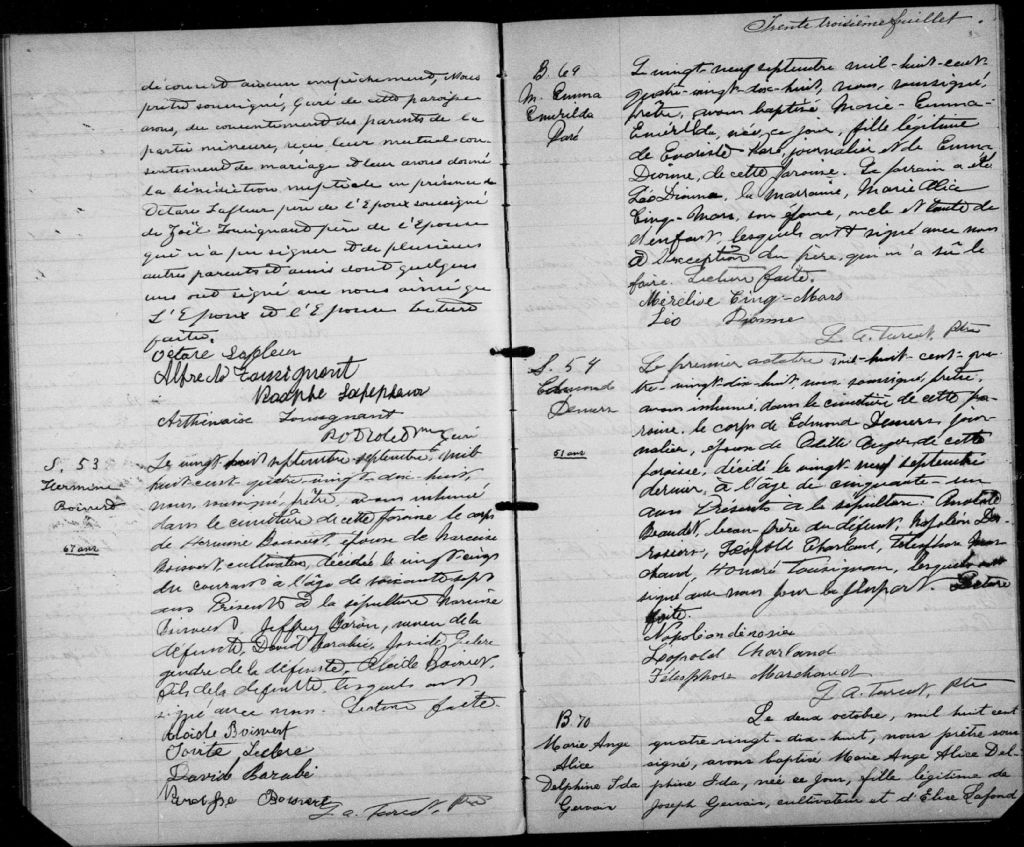 découvert aucun empêchement, Nous
prêtre soussigné, Curé de cette paroisse
avons, du consentement des parents de la
partie mineure, reçu leur mutuel con-
sentement de mariage et leur avons donné
la bénédiction nuptiale en présence de
Octave Lafleur père de l'Epoux soussigné
de Joël Tousignant père de l'Epouse
qui n'a pu signer et de plusieurs
autres parents et amis dont quelques
uns ont signé avec nous ainsi que
L'Epoux et l'Epouse lecture
faite.
Octave Lafleur
Alfred Tousignant
Arthénaise Tousignant
Curé
S. 53
Hermine
Boisvert
67 ans
Le vingt huit septembre septembre, mil
huit cent quatre-vingt-dix-huit,
nous, soussigné, prêtre, avons inhumé
dans le cimetière de cette paroisse le corps
de Hermine épouse de Narcisse
Boisvert cultivateur, décédée le vingt-cinq
du courant à l'âge de soixante sept
ans Présents à la sépulture Narcisse
Boisvert, Jeffrey Baron, neveu de la
défunte, David Barabé,
gendre de la défunte, Alcide Boisvert,
fils de la défunte lesquels ont
signé avec nous. Lecture faite.
Alcide Boisvert
Leclerc
David Barabé
Boisvert
L. A. Turcot, Ptre
Trente troisième feuillet.
B. 69
M. Emma
Emérilda
Paré
Le vingt-neuf septembre mil-huit-cent
quatre-vingt-dix-huit, nous, soussigné,
prêtre, avons baptisé Marie-Emma-
Emérilda, née ce jour, fille légitime
de Evariste Paré, journalier et de Emma
Dionne, de cette paroisse. Le parrain a été
Léo Dionne, la marraine, Marie Alice
Cinq-Mars, son épouse, oncle et tante de
l'enfant, lesquels ont signé avec nous
à l'exception du père, qui n'a sû le
faire. Lecture faite.
Cinq-Mars
Léo Dionne
L. A. Turcot, Ptre
S. 54
Edmond
Demers
51 ans
Le premier octobre mil-huit-cent-qua-
tre-vingt-dix-huit nous soussigné, prêtre,
avons inhumé dans le cimetière de cette pa-
roisse, le corps de Edmond Demers, jour-
nalier, époux de Odille Auger de cette
paroisse, décédé le vingt-neuf septembre
dernier, à l'âge de cinquante-un
ans Présents à la sépulture
Beaudet, beau-frère du défunt, Napoléon Des-
rosiers, Léopold Charland, Télesphore Mar-
chand, Honoré Tousignan, lesquels ont
signé avec nous pour la plupart. Lecture
faite.
Napoléon
Léopold Charland
Télesphore Marchand
L. A. Turcot, Ptre
B 70
Marie Ange
Alice
Delphine Ida
Gervais
Le deux octobre, mil huit cent
quatre-vingt-dix-huit, nous prêtre sous-
signé, avons baptisé Marie Ange Alice Del-
phine Ida, née ce jour, fille légitime de
Joseph Gervais, cultivateur et d'Elise Lafond